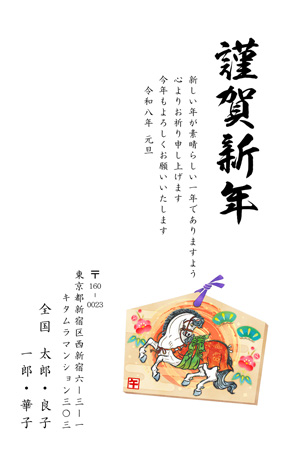 謹賀新年
新しい年が素晴らしい一年でありますよう
心よりお祈り申し上げます
今年もよろしくお願いいたします
令和八年 元旦
午
〒160-0023
東京都新宿区西新宿六ー三ー一
キタムラマンション三〇三
全国 太郎・良子
一郎・華子